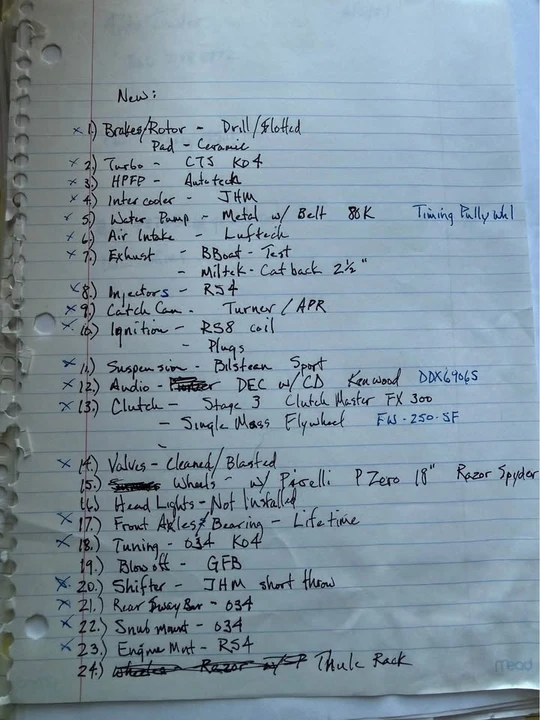 New:
x 1.) Brakes/Rotor - Drill/Slotted
Pad - Ceramic
x 2.) Turbo - CTS K04
x 3.) HPFP - Autotech
x 4.) Inter cooler - JHM
✓ 5.) Water Pump - Metal w/ Belt 80K Timing Pully whl
x 6.) Air Intake - Luftech
x 7.) Exhust - BBoat - Test
- Miltek - Cat back 2½"
x 8.) Injectors - RS4
x 9.) Catch Can - Turner / APR
x 10.) Ignition - RS8 coil
- Plugs
x 11.) Suspension - Bilstean Sport
x 12.) Audio - DEC w/CD Kenwood DDX6906S
x 13.) Clutch - Stage 3 Clutch Master FX 300
- Single Mass Flywheel FW-250-SF
x 14.) Valves - Cleaned/Blasted
15.) Wheels - w/ Pirelli P Zero 18" Razor Spyder
16.) Head Lights - Not Installed
x 17.) Front Axles/Bearing - Lifetime
x 18.) Tuning - 034 K04
19.) Blow off - GFB
x 20.) Shifter - JHM short throw
x 21.) Rear Sway Bar - 034
x 22.) Snub mount - 034
x 23.) Engine Mnt - RS4
24.) Wheels - Razor w/ P Thule Rack
Mead